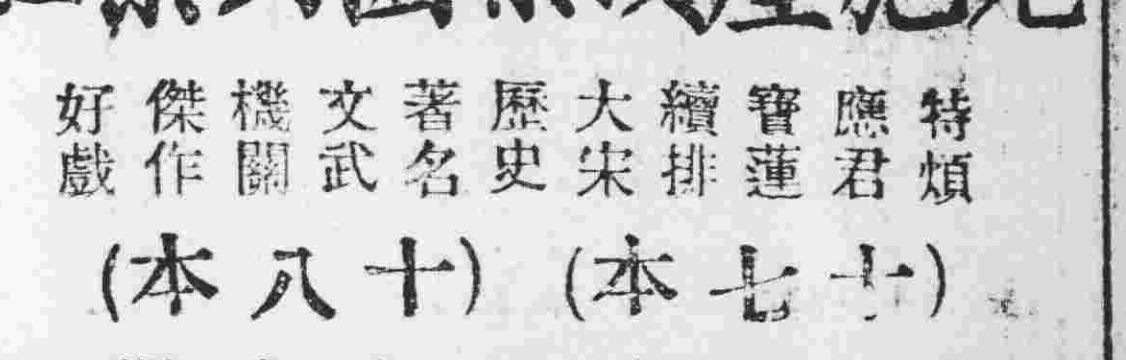 特煩
應君
寶蓮
續排
大宋
歷史
著名
文武
機關
傑作
好戲
(十七本)
(十八本)